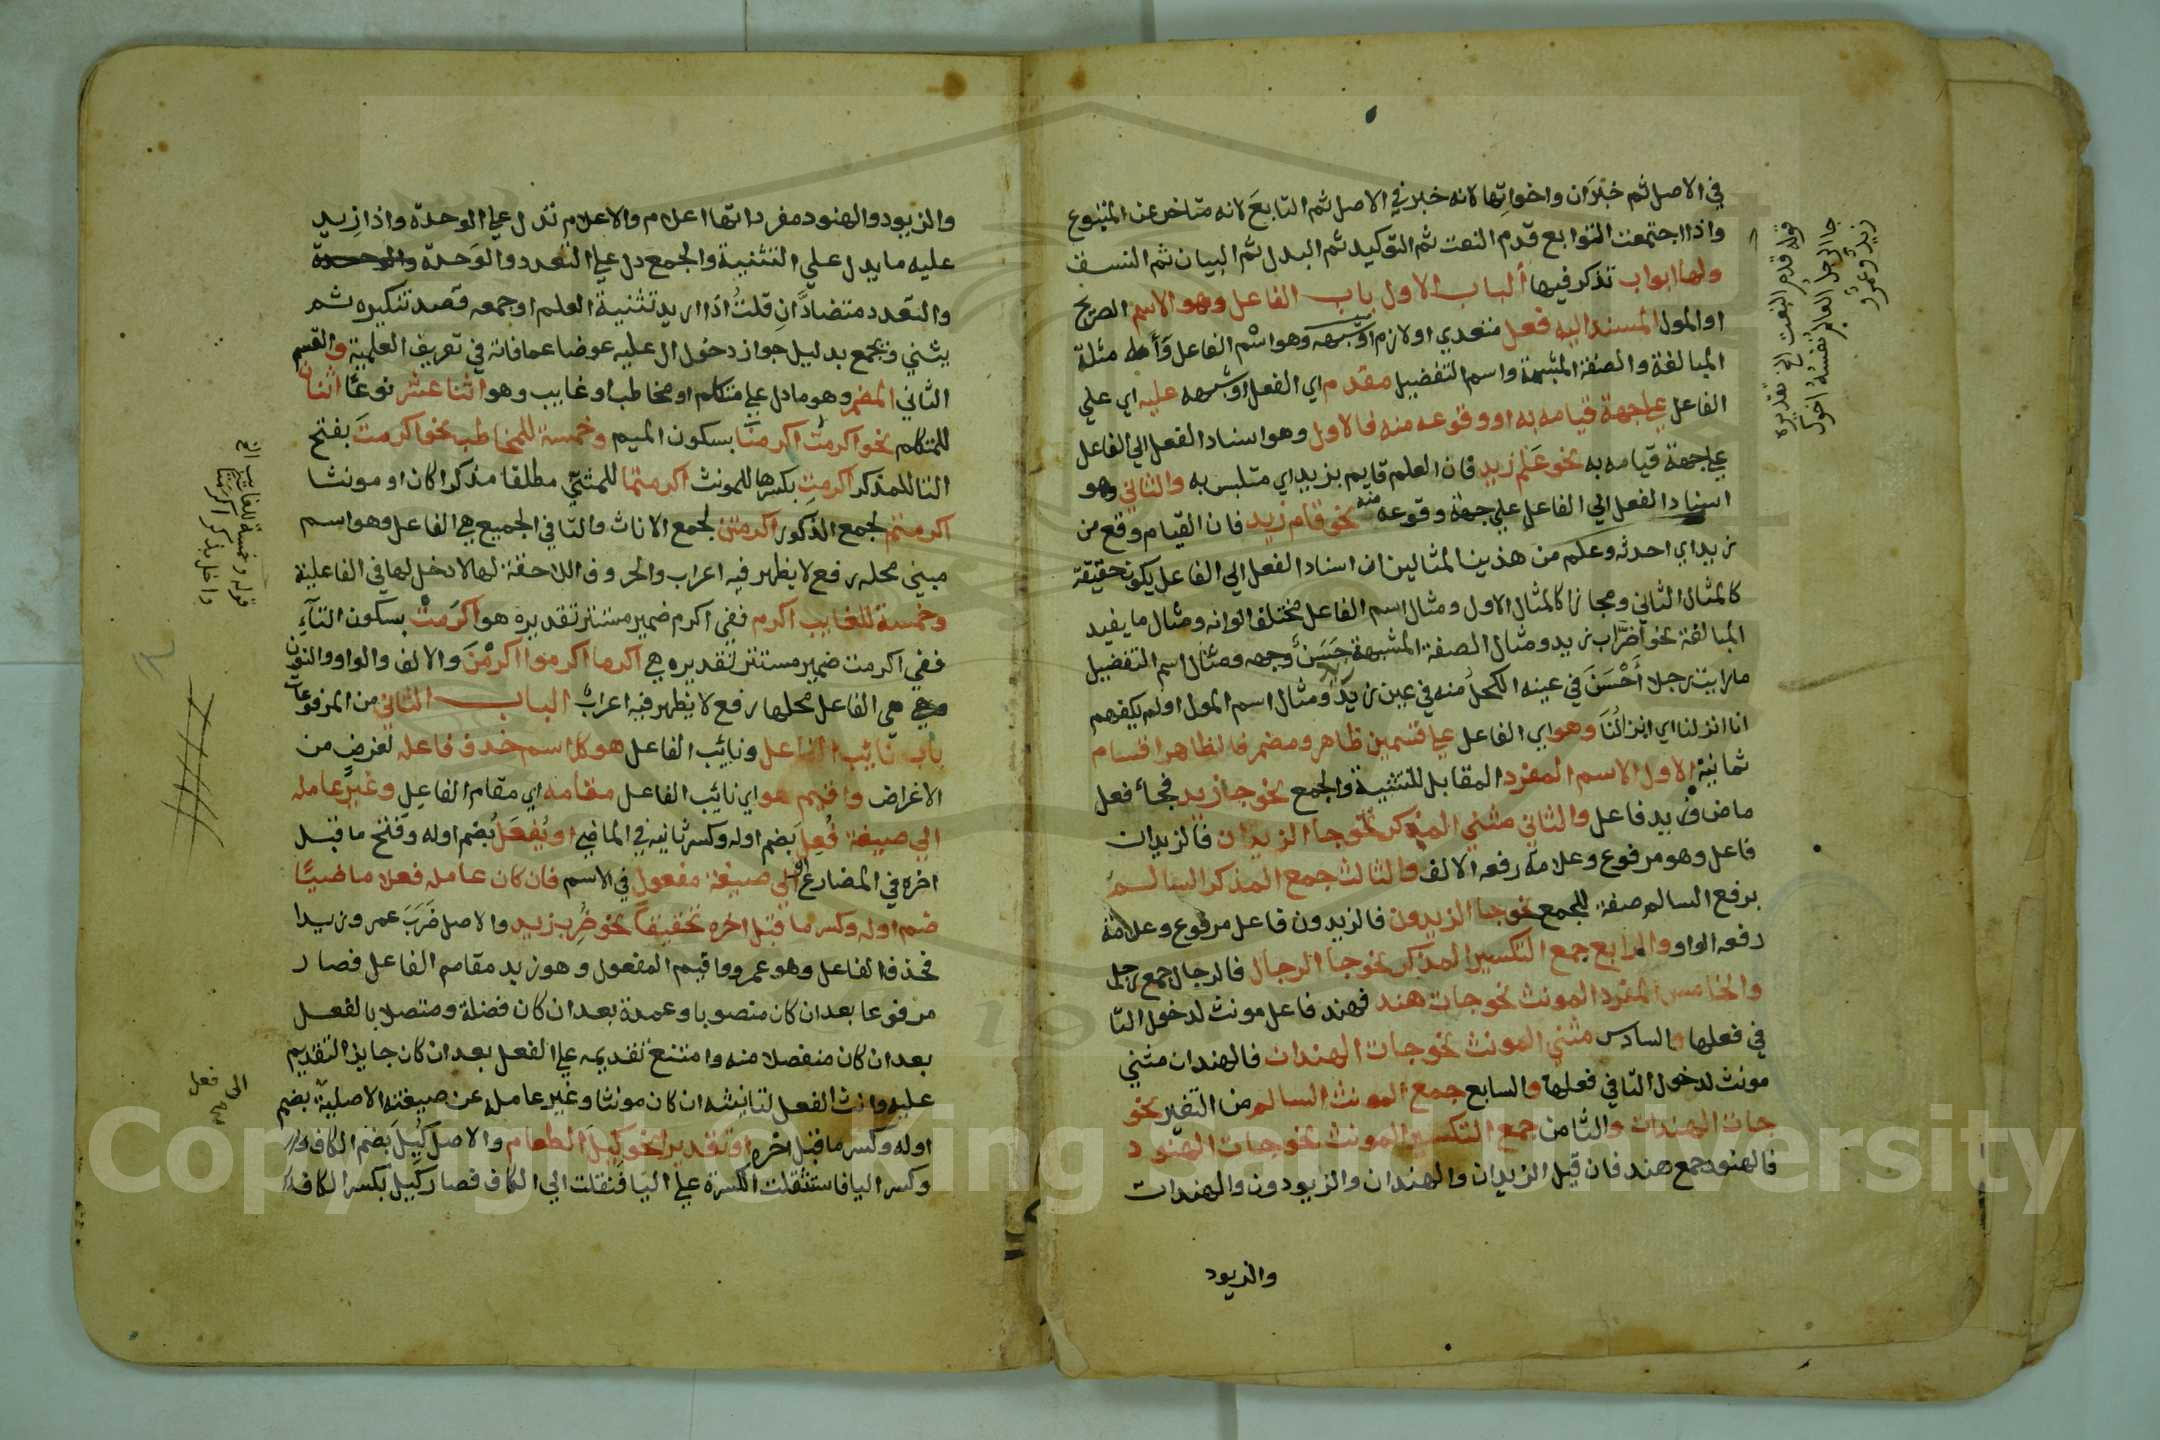 في الاصل ثم خبر ان واخواتها لانه خبر في الاصل ثم التابع لانه متاخر عن المتبوع
واذا اجتمعت التوابع قدم النعت ثم التوكيد ثم البدل ثم البيان ثم النسق
ولها ابواب تذكر فيها الباب الاول باب الفاعل وهو الاسم الصريح
او المول المسند اليه فعل متعدي او لازم او شبهه وهو اسم الفاعل وامثلة
المبالغة والصفة المشبهة واسم التفضيل مقدم اي الفعل او شبهه عليه اي علي
الفاعل علي جهة قيامه به او وقوعه منه فالاول وهو اسناد الفعل الي الفاعل
علي جهة قيامه به نحو علم زيد فان العلم قايم بزيد اي متلبس به والثاني وهو
اسناد الفعل الي الفاعل علي جهة وقوعه منه نحو قام زيد فان القيام وقع من
زيد اي احدثه وعلم من هذين المثالين ان اسناد الفعل الي الفاعل يكون حقيقة
كالمثال الثاني ومجازا كالمثال الاول ومثال اسم الفاعل مختلف الوانه ومثال ما يفيد
المبالغة نحو اضراب زيد ومثال الصفة المشبهة حسن وجهه ومثال اسم التفضيل
ما رايت رجلا احسن في عينه الكحل منه في عين زيد ومثال اسم المول اولم يكفهم
انا انزلنا اي انزالنا وهو اي الفاعل علي قسمين ظاهر ومضمر فالظاهر اقسام
ثمانية الاول الاسم المفرد المقابل للتثنية والجمع نحو جا زيد فجاء فعل
ماض وزيد فاعل والثاني مثني المذكر نحو جا الزيدان فالزيدان
فاعل وهو مرفوع وعلامة رفعه الالف والثالث جمع المذكر السالم
برفع السالم صفة للجمع نحو جا الزيدون فالزيدون فاعل مرفوع وعلامة
رفعه الواو والرابع جمع التكسير المذكر نحو جا الرجال فالرجال جمع رجل
والخامس المفرد المونث نحو جات هند فهند فاعل مونث لدخول التا
في فعلها والسادس مثني المونث نحو جات الهندات فالهندان مثني
مونث لدخول التا في فعلها والسابع جمع المونث السالم من التغير نحو
جات الهندات والثامن جمع التكسير المونث نحو جات الهنود
فالهنود جمع هند فان قيل الزيدان والهندان والزيودون والهندات
والزيود
قوله قدم النعت الخ تقديره
جا الرجل العالم نفسه اخوك
زيد وعمرو
والزيود والهنود مفرداتها اعلام والاعلام تدل علي الوحدة واذا زيد
عليه ما يدل علي التثنية والجمع دل علي التعدد والوحدة والوحدة
والتعدد متضادان قلت اذا اريد تثنية العلم او جمعه قصد تنكيره ثم
يثني ويجمع بدليل جواز دخول ال عليه عوضا عما فاته في تعريف العلمية والقسم
الثاني المضمر وهو ما دل علي متكلم او مخاطب او غايب وهو اثنا عشر نوعا اثنان
للمتكلم نحو اكرمت اكرمنا بسكون الميم وخمسة للمخاطب نحو اكرمت بفتح
التا للمذكر اكرمت بكسرها للمونث اكرمتما للمثني مطلقا مذكرا كان او مونثا
اكرمتم لجمع الذكور اكرمتن لجمع الاناث والتا في الجميع هي الفاعل وهو اسم
مبني محله رفع لا يظهر فيه اعراب والحروف اللاحقة لها لا دخل لها في الفاعلية
وخمسة للغايب اكرم ففي اكرم ضمير مستتر تقديره هو اكرمت بسكون التاء
ففي اكرمت ضمير مستتر تقديره هي اكرما اكرموا اكرمن والالف والواو والنون
هي الفاعل محلها رفع لا يظهر فيه اعراب الباب الثاني من المرفوعات
باب نايب الفاعل ونايب الفاعل هو كل اسم حذف فاعله لغرض من
الاغراض واقيم هو اي نايب الفاعل مقامه اي مقام الفاعل وغير عامله
الي صيغة فعل بضم اوله وكسر ثانيه في الماضي او يفعل بضم اوله وفتح ما قبل
اخره في المضارع او الي صيغة مفعول في الاسم فان كان عامله فعلا ماضيا
ضم اوله وكسر ما قبل اخره تحقيقا نحو ضرب زيد والاصل ضرب عمر وزيدا
فحذف الفاعل وهو عمرو واقيم المفعول وهو زيد مقام الفاعل فصار
مرفوعا بعد ان كان منصوبا وعمدة بعد ان كان فضلة ومتصلا بالفعل
بعد ان كان منفصلا منه وامتنع تقديمه علي الفعل بعد ان كان جايز التقديم
عليه وانث الفعل لتانيثه ان كان مونثا وغير عامله عن صيغته الاصلية بضم
اوله وكسر ما قبل اخره او تقديرا نحو كيل الطعام والاصل كيل بضم الكاف
وكسر اليا فاستثقلت الكسرة علي اليا فنقلت الي الكاف فصار كيل بكسر الكاف
قوله وخمسة للغايب الخ
الي فعل
Copyright © King Saud University